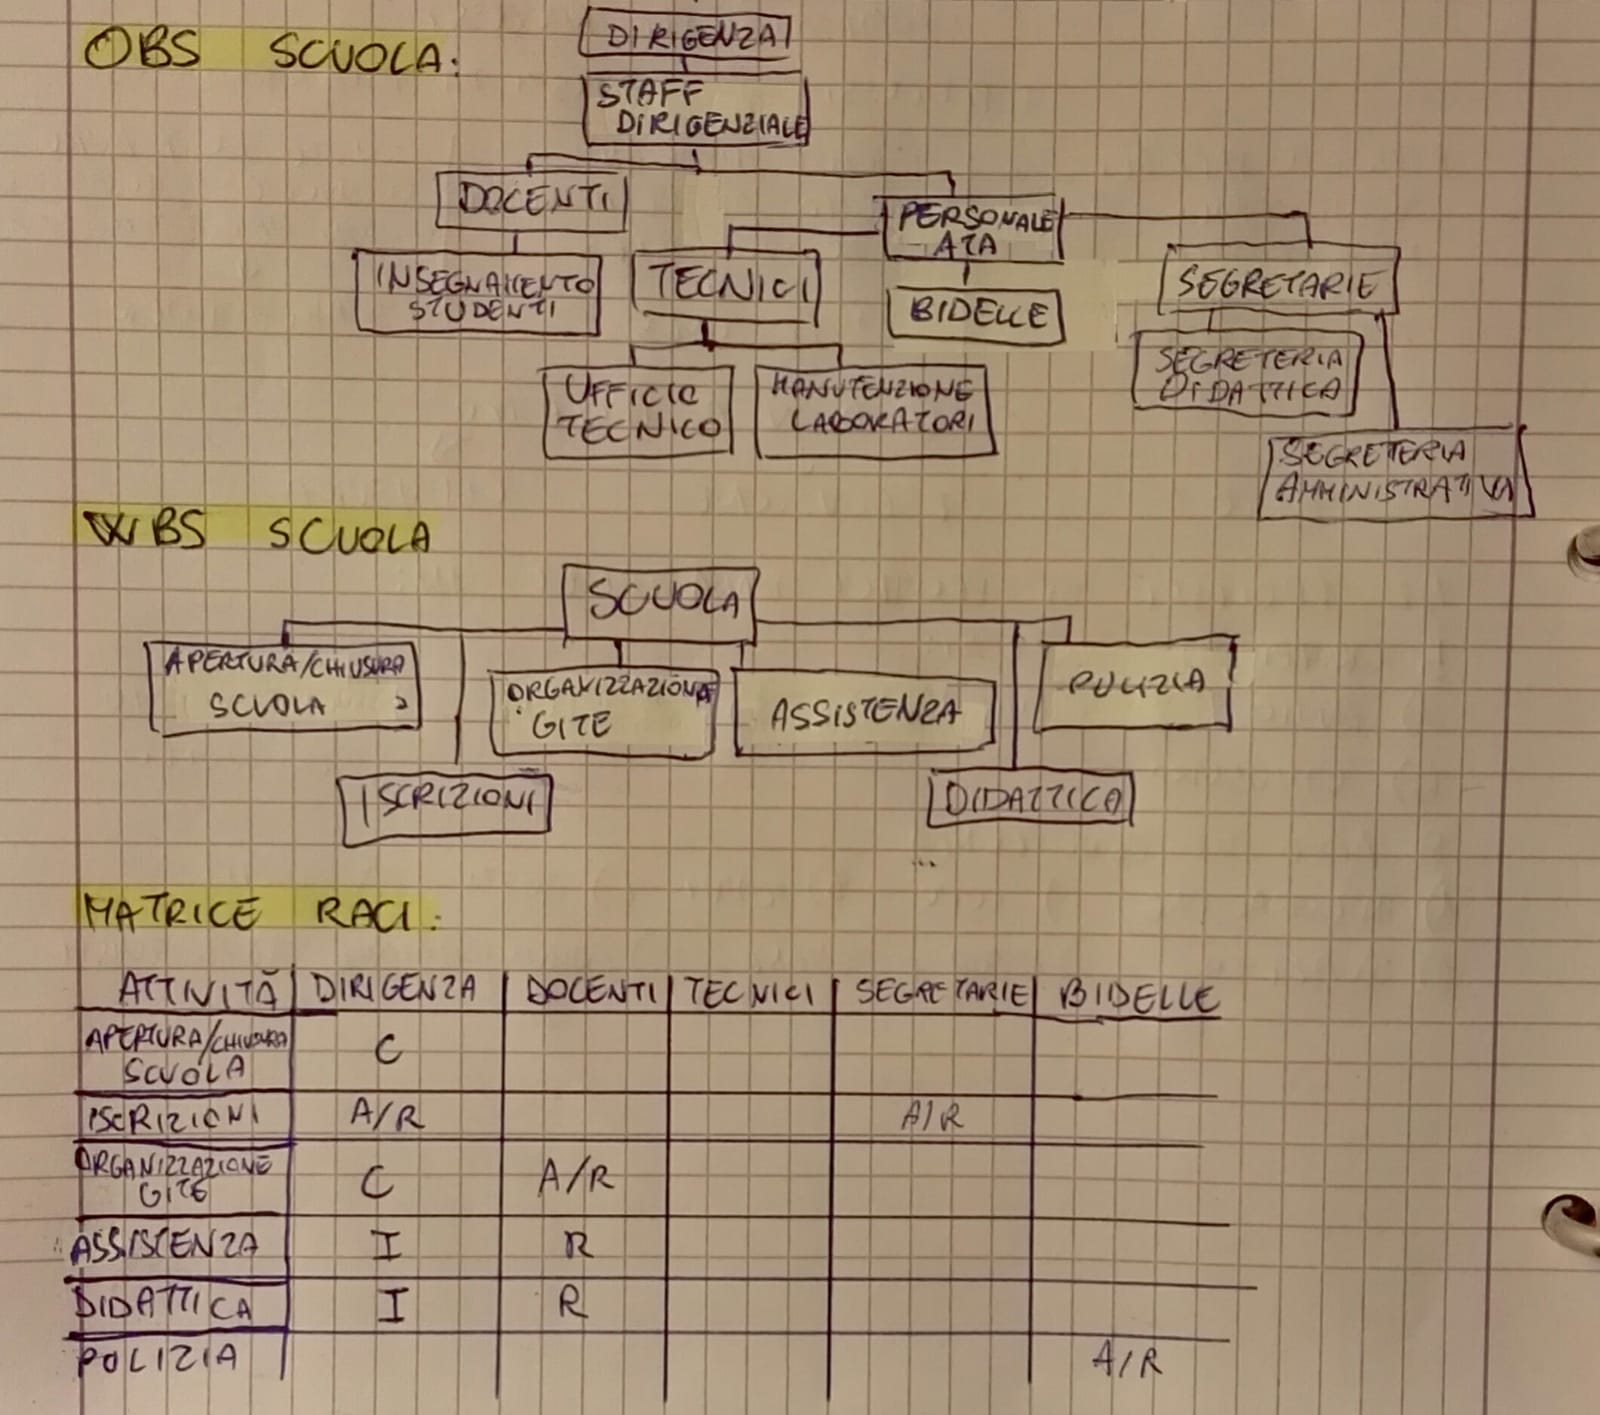 OBS SCUOLA:
DIRIGENZA
STAFF
DIRIGENZIALE
DOCENTI
PERSONALE
ATA
INSEGNAMENTO
STUDENTI
TECNICI
BIDELLE
SEGRETARIE
UFFICIO
TECNICO
MANUTENZIONE
LABORATORI
SEGRETERIA
DIDATTICA
SEGRETERIA
AMMINISTRATIVA
WBS SCUOLA
SCUOLA
APERTURA/CHIUSURA
SCUOLA
ORGANIZZAZIONE
GITE
ASSISTENZA
PULIZIA
ISCRIZIONI
DIDATTICA
...
MATRICE RACI:
ATTIVITÀ DIRIGENZA DOCENTI TECNICI SEGRETARIE BIDELLE
APERTURA/CHIUSURA
SCUOLA C
ISCRIZIONI A/R A/R
ORGANIZZAZIONE
GITE C A/R
ASSISTENZA I R
DIDATTICA I R
POLIZIA A/R